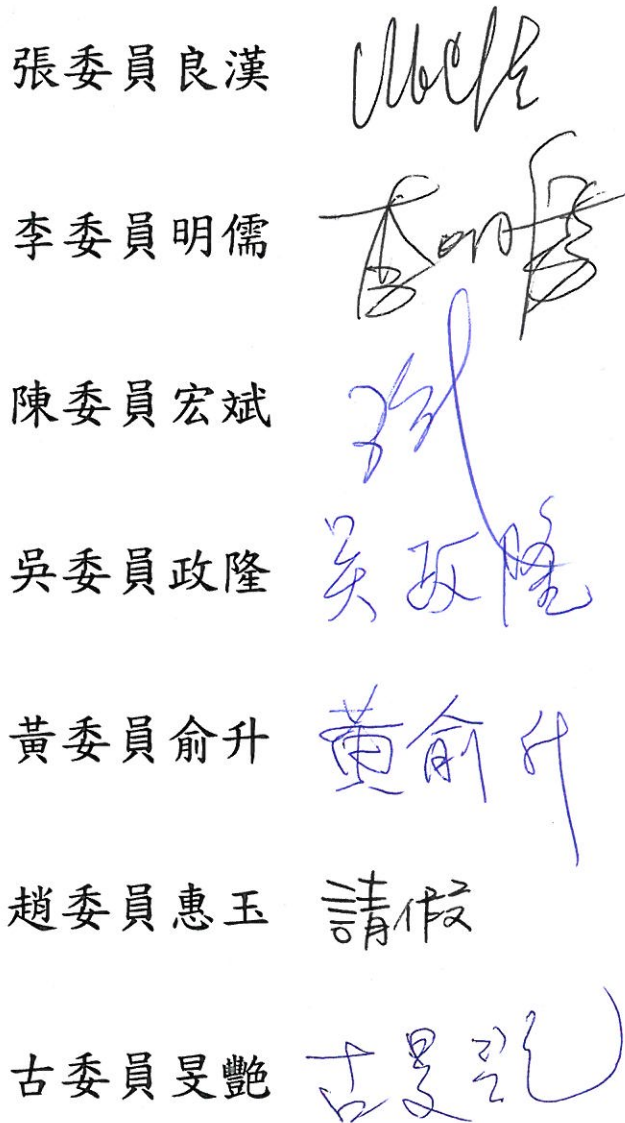 張委員良漢
李委員明儒 李明儒
陳委員宏斌
吳委員政隆 吳政隆
黃委員俞升 黃俞升
趙委員惠玉 請假
古委員旻艷 古旻艷